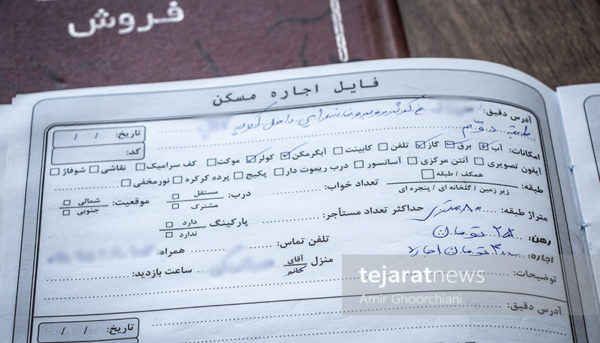 فروش
فایل اجاره مسکن
آدرس دقیق: تاریخ: / /
طبقه دوم کد:
امکانات: آب برق گاز تلفن کابینت آبگرمکن کولر موکت کف سرامیک نقاشی شوفاژ
آیفون تصویری آنتن مرکزی آسانسور درب ریموت دار پکیج پرده کرکره نورمخفی
طبقه: همکف / طبقه تعداد خواب: درب: مستقل موقعیت: شمالی
زیر زمین / گلخانه ای / پنجره ای مشترک جنوبی
متراژ طبقه: ۸۰ متری حداکثر تعداد مستأجر: پارکینگ دارد
ندارد
رهن: تومان تلفن تماس: همراه:
اجاره: تومان اجاره منزل آقای ساعت بازدید:
خانم
توضیحات:
tejaratnews
Amir Ghoorchiani
آدرس دقیق: تاریخ: / /